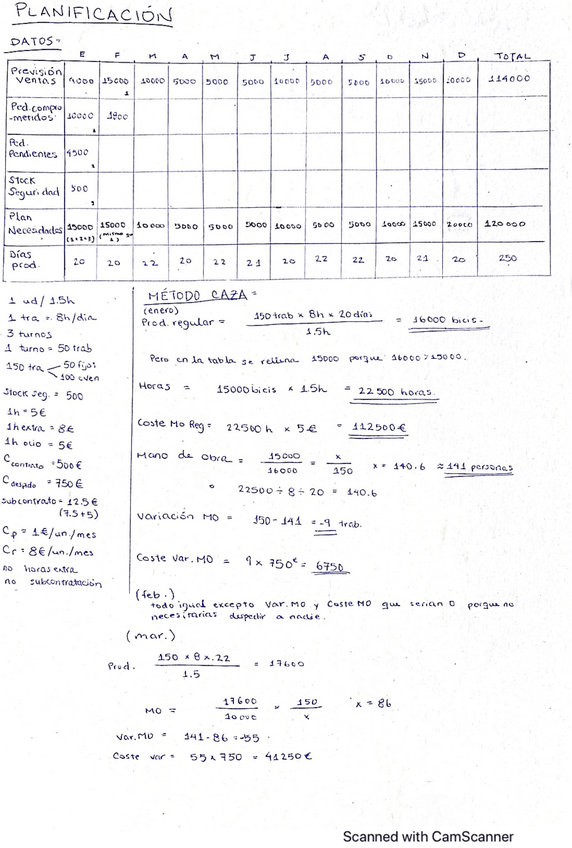 PLANIFICACIÓN
DATOS=
E F M A M J J A S O N D TOTAL
Previsión ventas 9000 15000 10000 5000 5000 5000 10000 5000 5000 10000 15000 20000 114000
1
Ped. compro-metidos 10000 1900
2
Ped. Pendientes 4500
2
Stock Seguridad 500
3
Plan Necesidades 15000 15000 10000 5000 5000 5000 10000 5000 5000 10000 15000 20000 120000
(1+2+3)
Días prod. 20 20 22 20 22 21 20 22 22 20 21 20 250
1 ud/ 1.5h
1 tra = 8h/día
3 turnos
1 turno = 50 trab
150 tra 50 fijos
100 even
Stock seg. = 500
1h = 5€
1h extra = 8€
1h ocio = 5€
Ccontrato = 500€
Cdespido = 750€
subcontrato = 12.5€
(7.5+5)
Cp = 1€/un./mes
Cr = 8€/un./mes
no horas extra
no subcontratación
MÉTODO CAZA=
(enero)
Prod. regular = 150 trab x 8h x 20 días / 1.5h = 16000 bicis.
Pero en la tabla se rellena 15000 porque 16000>15000.
Horas = 15000 bicis x 1.5h = 22500 horas.
Coste Mo Reg = 22500 h x 5€ = 112500€
Mano de Obra = 15000/16000 = x/150 x = 140.6 ≈ 141 personas
o 22500 ÷ 8 ÷ 20 = 140.6
Variación MO = 150-141 = -9 trab.
Coste Var. MO = 9 x 750€ = 6750
(feb.)
todo igual excepto Var. MO y Coste MO que serían 0 porque no
necesitarías despedir a nadie.
(mar.)
Prod. 150 x 8 x 22 / 1.5 = 17600
MO = 17600/10000 = 150/x x = 86
Var. MO = 141-86 = -55
Coste var = 55 x 750 = 41250€
Scanned with CamScanner